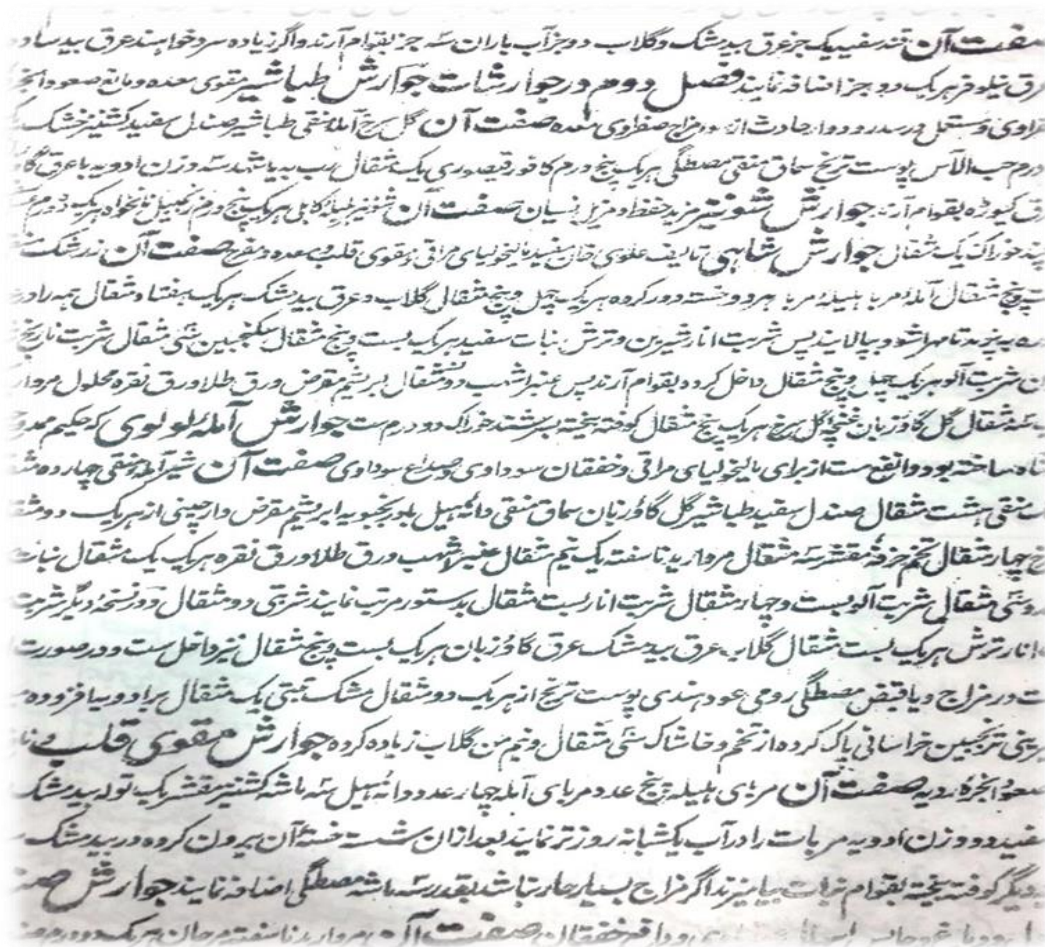 صفت آن قند سفید یک جز عرق بیدمشک و گلاب دو جز آب باران سه جز بقوام آرند و اگر زیاده سرد خواهند عرق بید ساده
عرق نیلوفر هر یک دو جز اضافه نمایند فصل دوم در جوارشات جوارش طباشیر مقوی معده و مانع صعود ابخره
صفراوی و مستعمل در سدر و دوار حادث از سوء مزاج صفراوی معده صفت آن گل سرخ آمله منقی طباشیر صندل سفید کشنیز خشک
درم حب الآس پوست ترنج سماق منقی مصطگی هر یک پنج درم کافور قیصوری یک مثقال رب به یا شهد سه وزن ادویه با عرق
عرق کیوڑه بقوام آرند جوارش شونیز مزید حفظ و مزیل نسیان صفت آن شونیز هلیله کابلی هر یک پنج درم زنجبیل نانخواه هر یک درم
چند خوراک یک مثقال جوارش شاهی تالیف علوی خان مفید مالیخولیای مراقی و مقوی قلب و معده و مفرح صفت آن زرشک
پنج مثقال آمله مربا هلیله مربا هر دو خسته دور کرده هر یک چهل و پنج مثقال گلاب و عرق بیدمشک هر یک هفتاد مثقال همه را در
به پزند تا مهرا شود بپالایند پس شربت انار شیرین و ترش نبات سفید هر یک بست و پنج مثقال سکنجبین سی مثقال شربت نارنج
شربت آلو هر یک چهل و پنج مثقال داخل کرده بقوام آرند پس عنبر اشهب دو مثقال ابریشم مقرض ورق طلا ورق نقره محلول مروارید
سه مثقال گل گاؤزبان غنچه گل سرخ هر یک پنج مثقال کوفته بیخته بسرشند خوراک دو درم ست جوارش آمله لولوی که حکیم
شاه ساخته بود و انفع ست از برای مالیخولیای مراقی و خفقان سوداوی و صداع سوداوی صفت آن شیر آمله منقی چهارده
منقی هشت مثقال صندل سفید طباشیر گل گاؤزبان سماق منقی دانه هیل بادرنجبویه ابریشم مقرض دارچینی از هر یک دو مثقال
چهار مثقال تخم خرفه مقشر سه مثقال مروارید ناسفته یک نیم مثقال عنبر اشهب ورق طلا ورق نقره هر یک یک مثقال نبات
سی مثقال شربت آلو بست و چهار مثقال شربت انار بست مثقال بدستور مرتب نمایند شربتی دو مثقال و در نسخه دیگر شربت
انار ترش هر یک بست مثقال گلاب عرق بیدمشک عرق گاؤزبان هر یک بست و پنج مثقال نیز داخل ست و در صورت
در مزاج و یا قبض مصطگی رومی عود هندی پوست ترنج از هر یک دو مثقال مشک تبتی یک مثقال برادویه افزوده
ترنجبین خراسانی پاک کرده از تخم و خاشاک سی مثقال و نیم من گلاب زیاده کرده جوارش مقوی قلب
صعود ابخره ردیه صفت آن مربای هلیله پنج عدد مربای آمله چهار عدد دانه هیل سه ماشه کشنیز مقشر یک توله بیدمشک
سفید دو وزن ادویه مربیات را در آب یکشبانه روز تر نمایند بعد ازان شسته خسته آن بیرون کرده در بیدمشک
دیگر کوفته بیخته بقوام نبات بیامیزند اگر مزاج بسیار حار نباشد بقدر سه ماشه مصطگی اضافه نمایند جوارش
خفقان صفت آن مروارید ناسفته مرجان هر یک دو درم